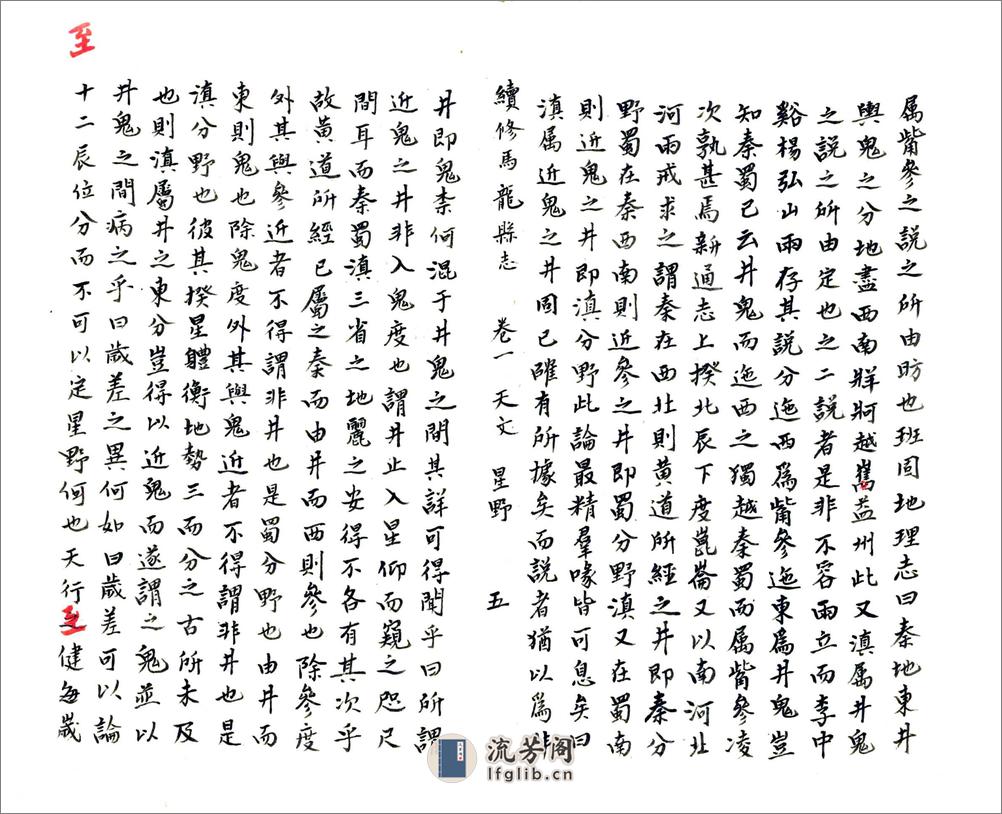 属觜參之說之所由昉也班固地理志曰秦地東井
輿鬼之分地盡西南牂牁越嶲益州此又滇属井鬼
之說之所由定也之二說者是非不容兩立而李中
谿楊弘山兩存其說分迤西爲觜參迤東爲井鬼豈
知秦蜀已云井鬼而迤西之獨越秦蜀而属觜參凌
次孰甚焉新通志上揆北辰下度崑崙又以南河北
河兩戒求之謂秦在西北則黄道所經之井即秦分
野蜀在秦西南則近參之井即蜀分野滇又在蜀南
則近鬼之井即滇分野此論最精羣喙皆可息矣曰
滇属近鬼之井固已確有所據矣而說者猶以爲非
續修馬龍縣志 卷一 天文 星野 五
井即鬼柰何混于井鬼之間其詳可得聞乎曰所謂
近鬼之井非入鬼度也謂井止入星仰而窺之咫尺
間耳而秦蜀滇三省之地麗之安得不各有其次乎
故黄道所經已屬之秦而由井而西則參也除參度
外其與參近者不得謂非井也是蜀分野也由井而
東則鬼也除鬼度外其與鬼近者不得謂非井也是
滇分野也彼其揆星軆衡地勢三而分之古所未及
也則滇屬井之東分豈得以近鬼而遂謂之鬼並以
井鬼之間病之乎曰歲差之異何如曰歲差可以論
十二辰位分而不可以定星野何也天行至健每歲
至
流芳阁
lfglib.cn